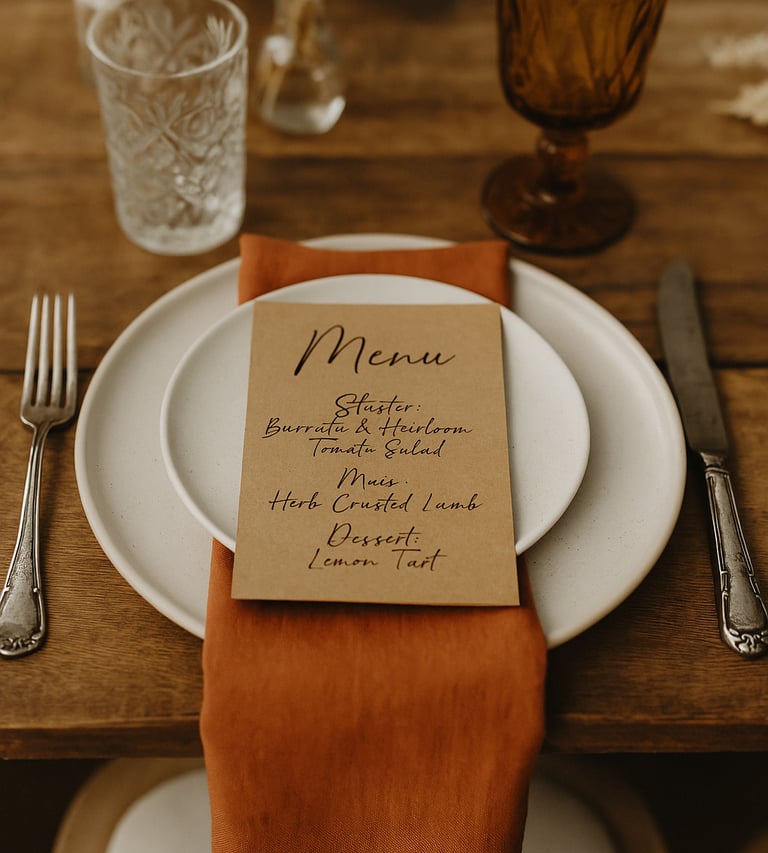 Menu
Stuster:
Burratu & Heirloom
Tomatu Sulad
Muis.
Herb Crusted Lumb
Dessert:
Lemon Tart